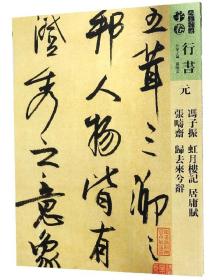 行書
元
馮子振 虹月樓記 居庸賦
張嘯齋 歸去來兮辭
五茸三泖之
邦人物皆有
澄秀之意象